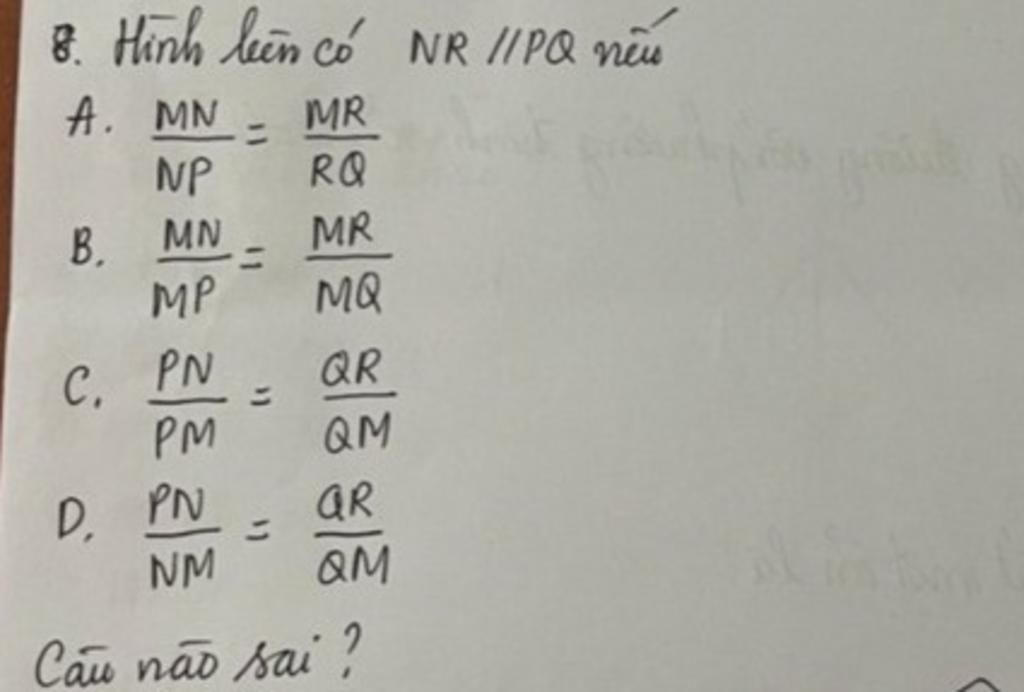 8. Hình bên có NR // PQ nếu
A. MN/NP = MR/RQ
B. MN/MP = MR/MQ
C. PN/PM = QR/QM
D. PN/NM = QR/QM
Câu nào sai?